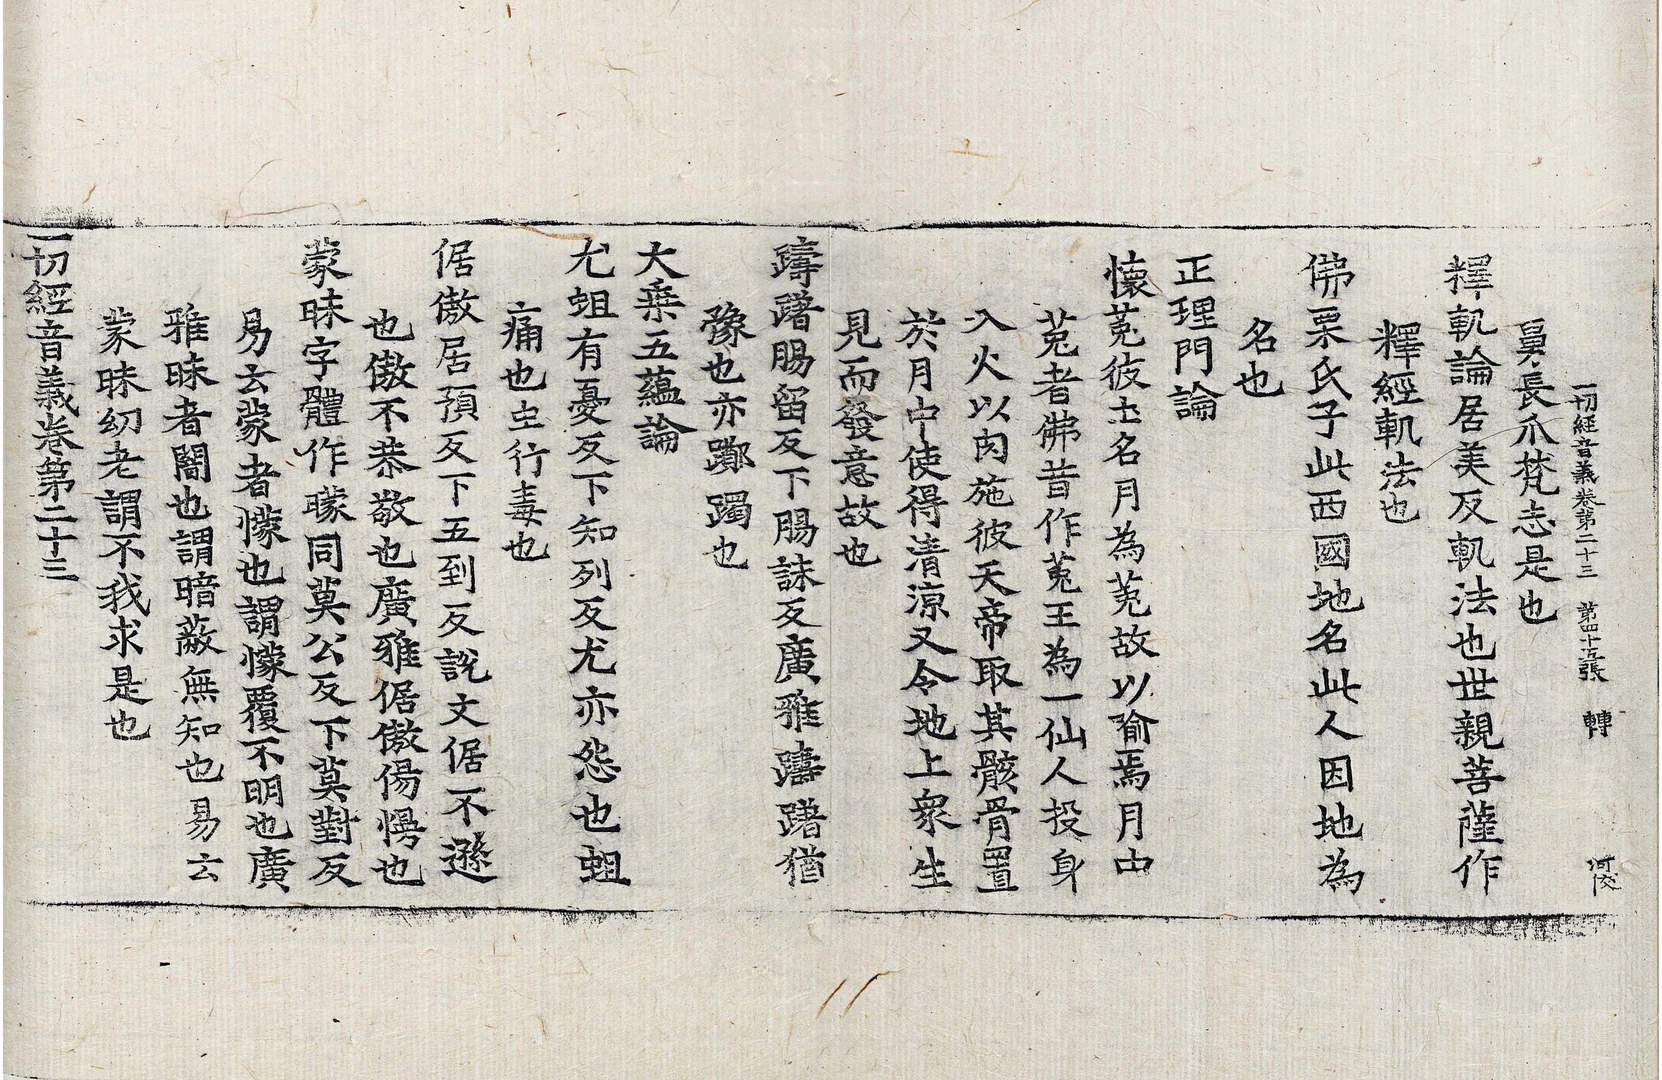 一切經音義卷第二十三　第四十五張　轉　河陵
舅長爪梵志是也
釋軌論居美反軌法也世親菩薩作
釋經軌法也
佛栗氏子此西國地名此人因地為
名也
正理門論
懷菟彼土名月為菟故以喻焉月中
菟者佛昔作菟王為一仙人投身
入火以肉施彼天帝取其骸骨置
於月中使得清涼又令地上衆生
見而發意故也
躊躇腸留反下腸誅反廣雅躊躇猶
豫也亦躑躅也
大乘五蘊論
尤蛆有憂反下知列反尤亦怨也蛆
痛也虫行毒也
倨傲居預反下五到反說文倨不遜
也傲不恭敬也廣雅倨傲傷慢也
蒙昧字體作矇同莫公反下莫對反
易云蒙者懞也謂懞覆不明也廣
雅昧者闇也謂暗蔽無知也易云
蒙昧幼老謂不我求是也
一切經音義卷第二十三